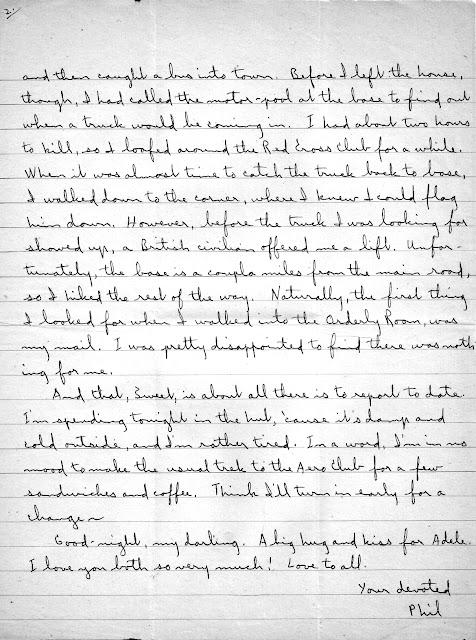 2.
and then caught a bus into town. Before I left the house,
though, I had called the motor-pool at the base to find out
when a truck would be coming in. I had about two hours
to kill, so I loafed around the Red Cross Club for a while.
When it was almost time to catch the truck back to base,
I walked down to the corner, where I knew I could flag
him down. However, before the truck I was looking for
showed up, a British civilian offered me a lift. Unfor-
tunately, the base is a coupla miles from the main road,
so I hiked the rest of the way. Naturally, the first thing
I looked for when I walked into the Orderly Room, was
my mail. I was pretty disappointed to find there was noth
ing for me.
And that, Sweet, is about all there is to report to date.
I'm spending tonight in the hut, 'cause it's damp and
cold outside, and I'm rather tired. In a word, I'm in no
mood to make the usual trek to the Aero Club for a few
sandwiches and coffee. Think I'll turn in early for a
change~
Good-night, my darling. A big hug and kiss for Adele.
I love you both so very much! Love to all.
Your devoted
Phil